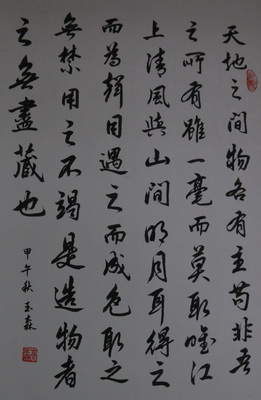 天地之間物各有主苟非吾
之所有雖一毫而莫取唯江
上清風與山間明月耳得之
而為聲目遇之而成色取之
無禁用之不竭是造物者
之無盡藏也
甲午秋玉森